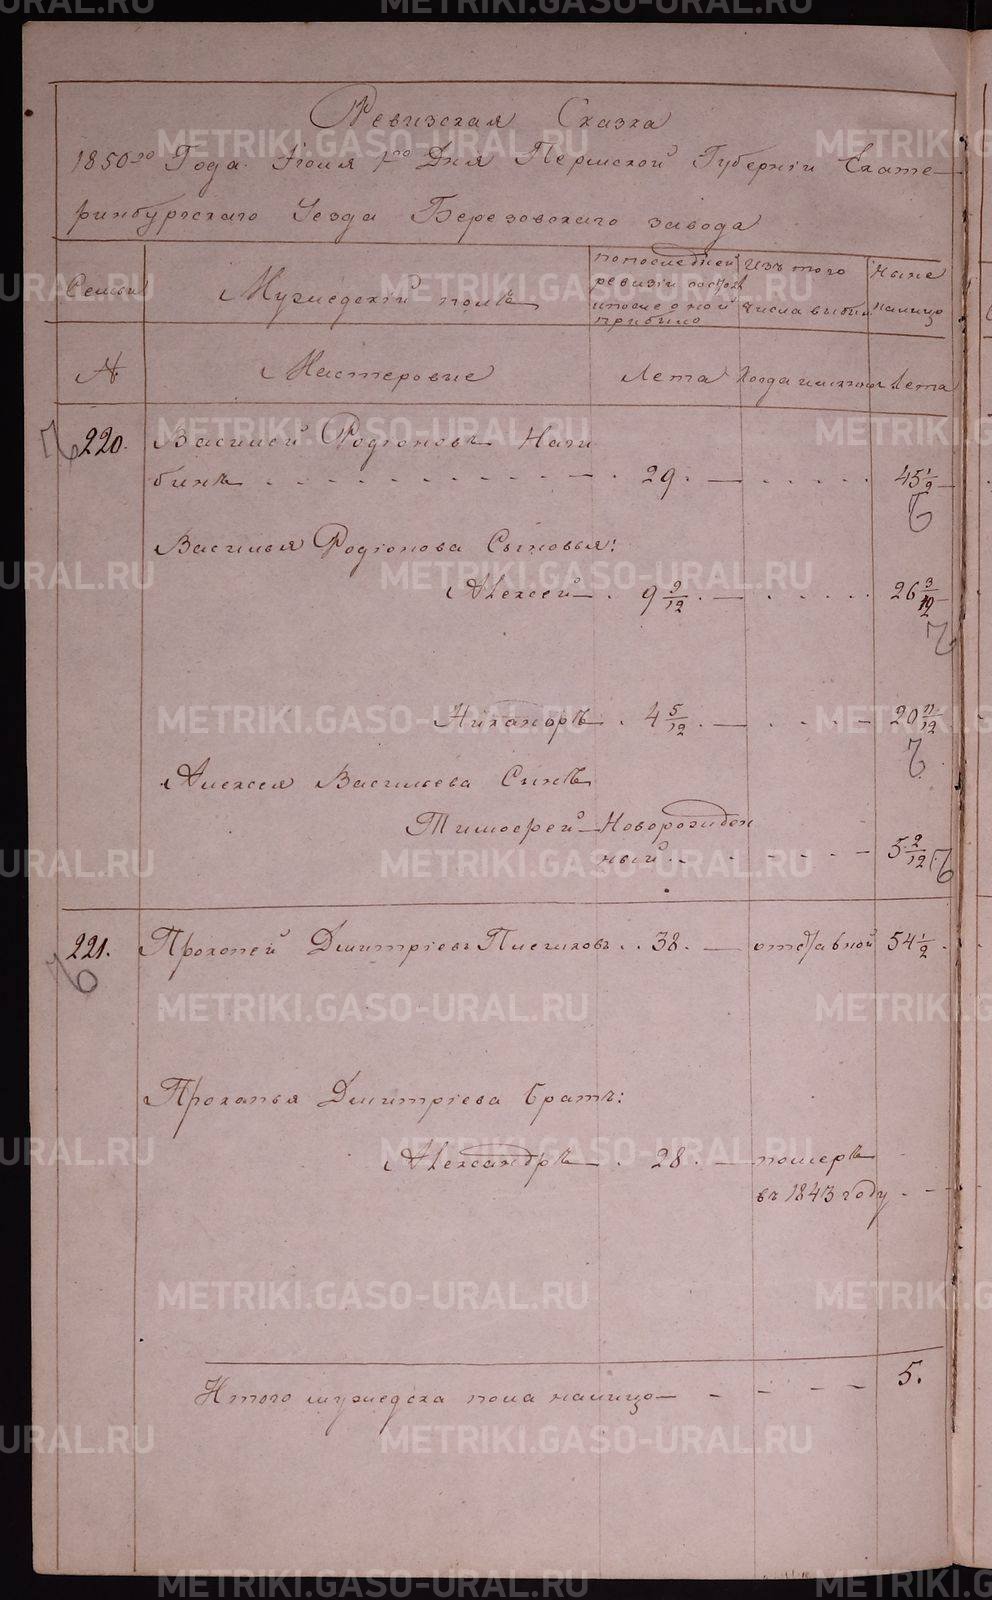 Ревизская Сказка
1850го Года Іюля 1го Дня Пермской Губерніи Екате-
ринбургскаго Уезда Березовскаго завода
Семьи
Мужедскій полъ
попоследней
ревизіи состоял
ипосле оной
прибыло
Изъ того
числа выбыл
Ныне
налицо
№
Мастеровые
Лета
Когда именно
Лета
220. Василей Родіоновъ Наги
бинъ 29. 45 1/2
Василья Родіонова Сыновья:
Алексей 9 9/12 26 3/12
Никаноръ 4 5/12 20 11/12
Алексея Васильева Сынъ
Тимофей Новорожден
ный 5 2/12
221. Прокопей Дмитріевъ Писчиковъ 38. отставной 54 1/2
Прокопья Дмитріева братъ:
Александръ 28. померъ
въ 1843 году
Итого мужедска пола налицо 5.
METRIKI.GASO-URAL.RU